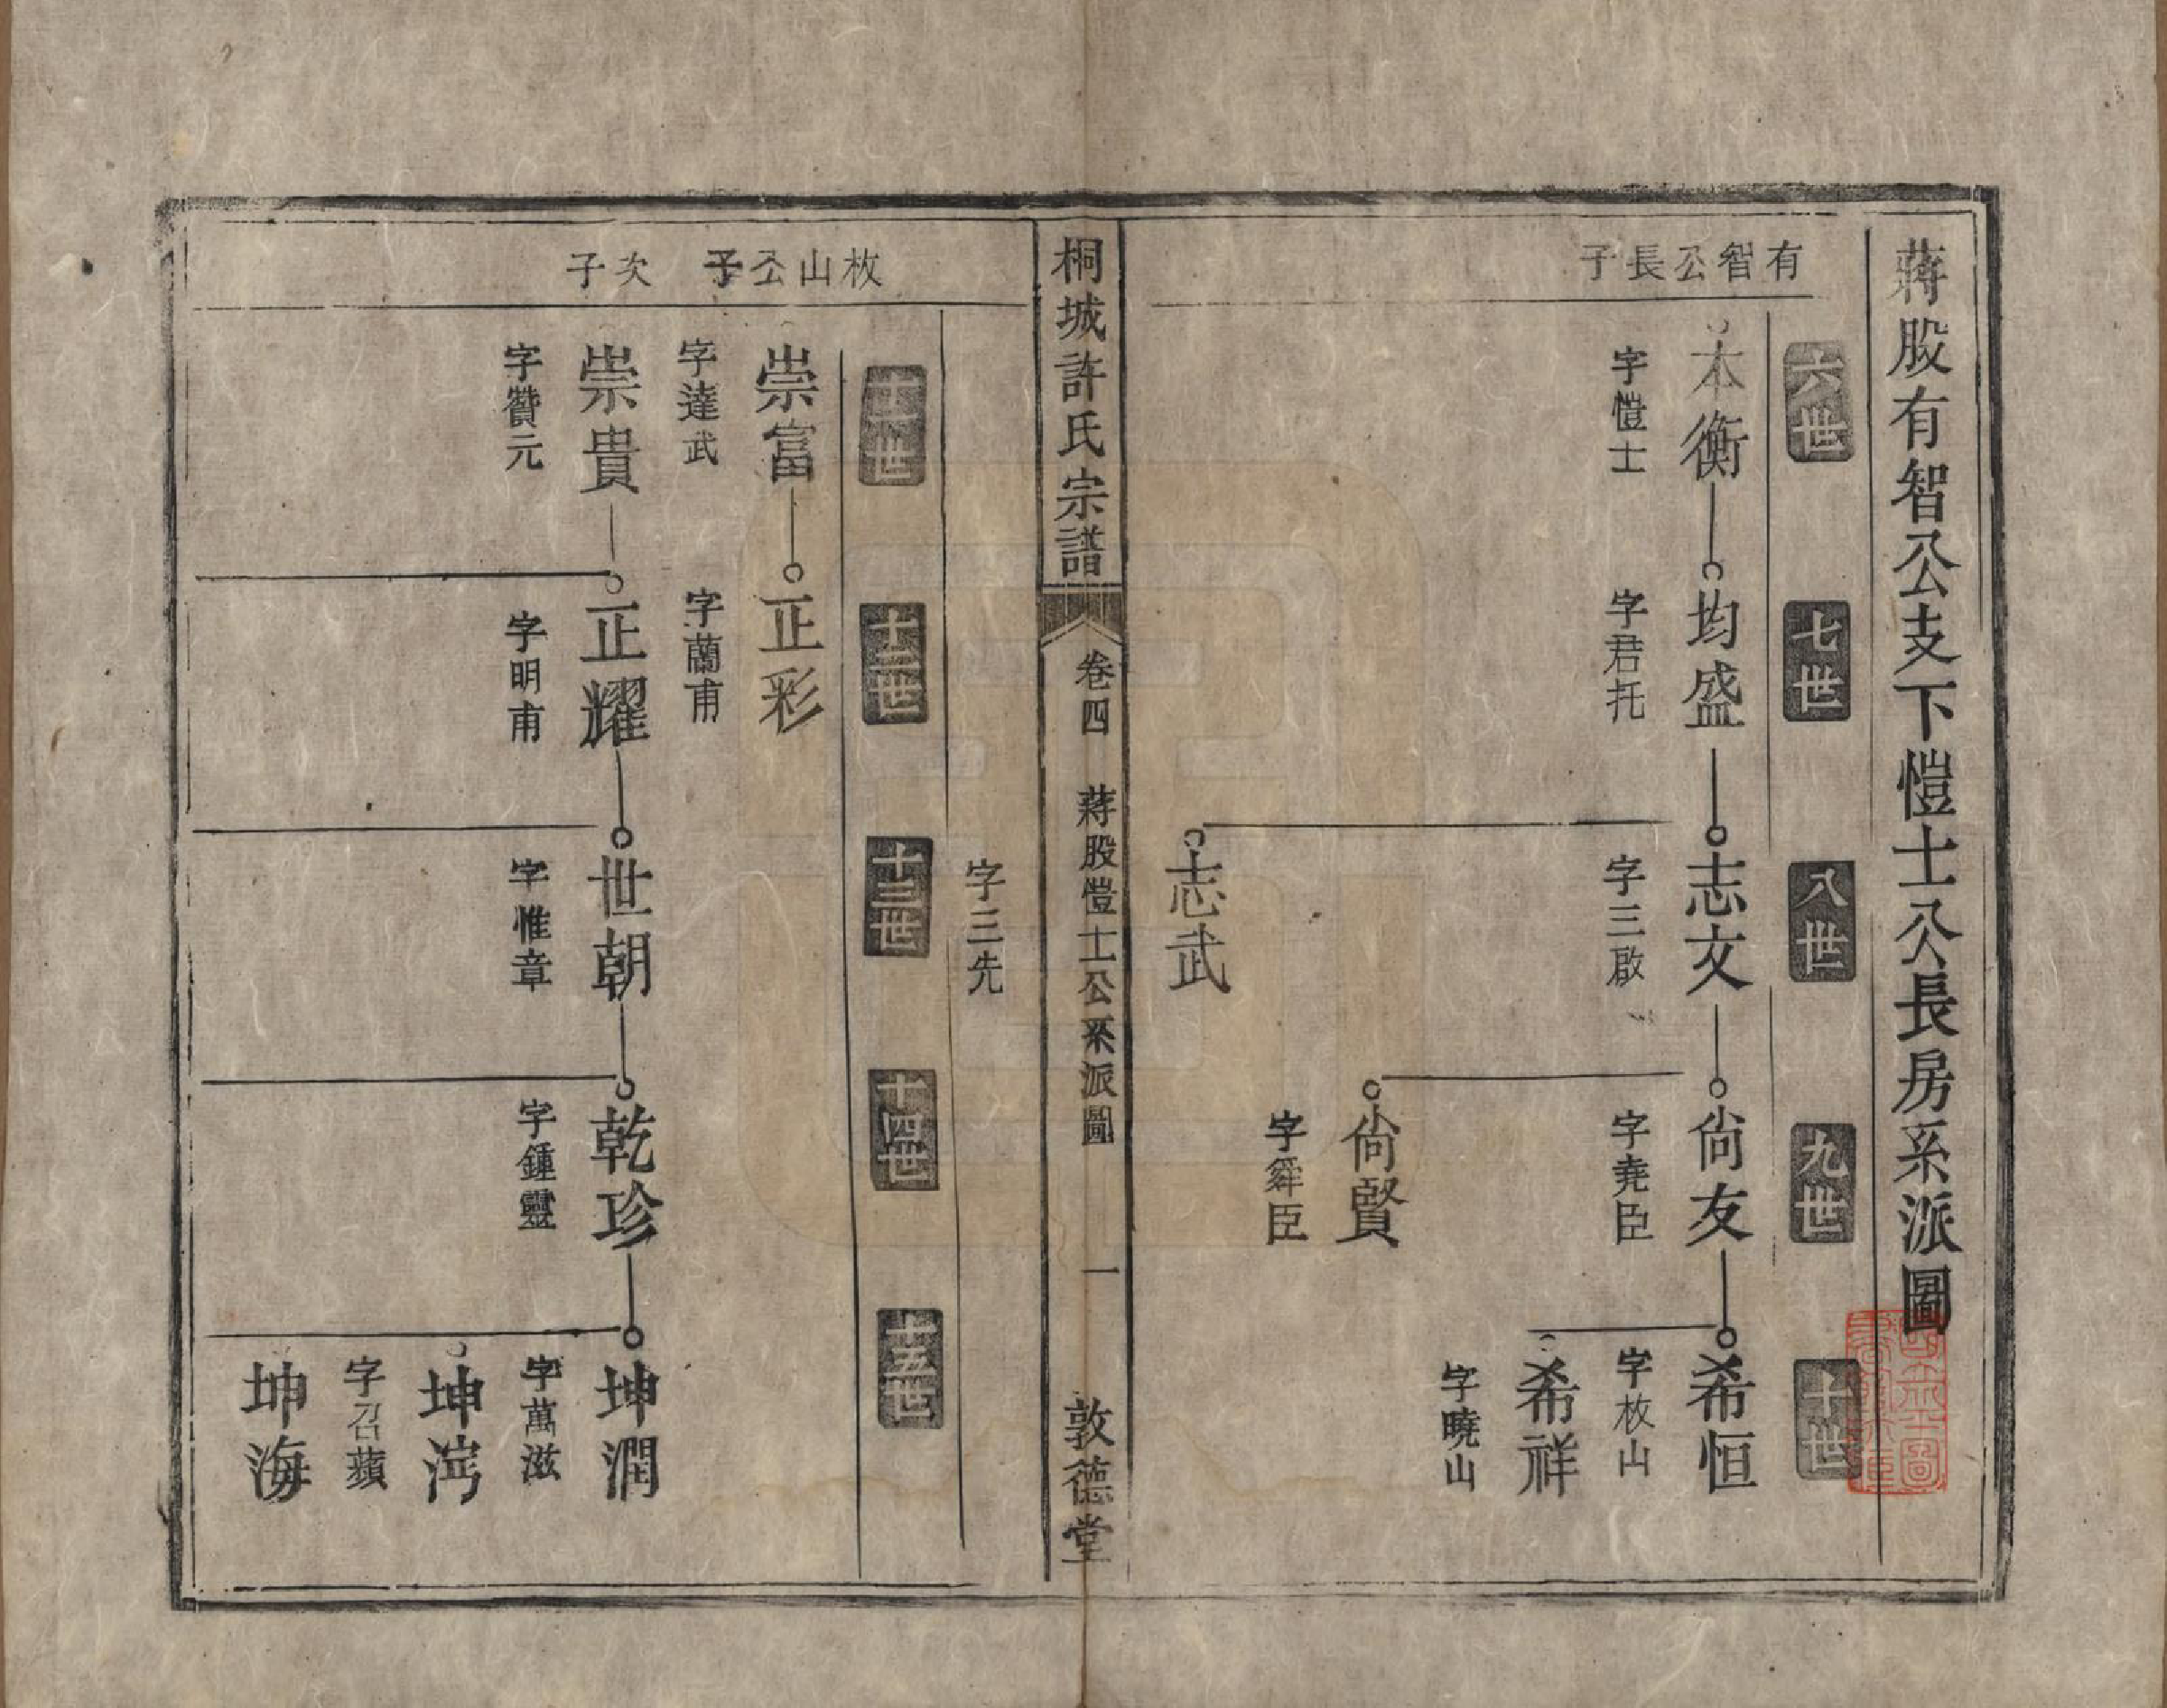 蔣股有智公支下愷士公長房系派圖
六世
七世
八世
九世
十世
有智公長子
本衡
字愷士
均盛
字君托
志文
字三啟
尙友
字堯臣
希恒
字枚山
希祥
字曉山
尙賢
字舜臣
志武
桐城許氏宗譜
卷四
蔣股愷士公系派圖
一
敦德堂
字三先
十一世
十二世
十三世
十四世
十五世
枚山公子
崇富
字達武
正彩
字蘭甫
次子
崇貴
字贊元
正耀
字明甫
世朝
字惟章
乾珍
字鍾靈
坤潤
字萬滋
坤涝
字召蘋
坤海